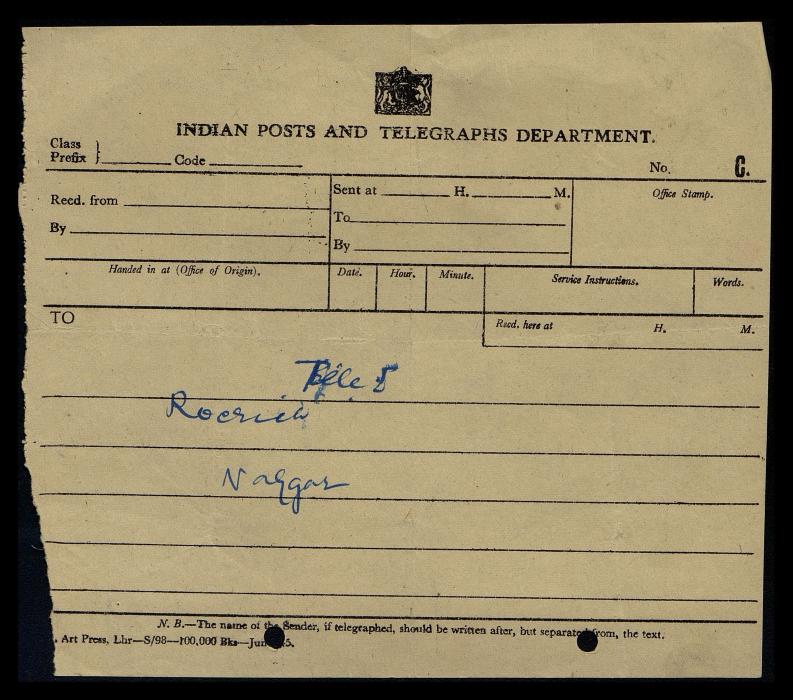 INDIAN POSTS AND TELEGRAPHS DEPARTMENT.
Class
Prefix } Code
No. C.
Recd. from
By
Sent at H. M.
To
By
Office Stamp.
Handed in at (Office of Origin).
Date.
Hour.
Minute.
Service Instructions.
Words.
TO
Recd. here at H. M.
Roerich
Naggar
N. B.—The name of the Sender, if telegraphed, should be written after, but separated from, the text.
. Art Press, Lhr—S/98—100,000 Bks—